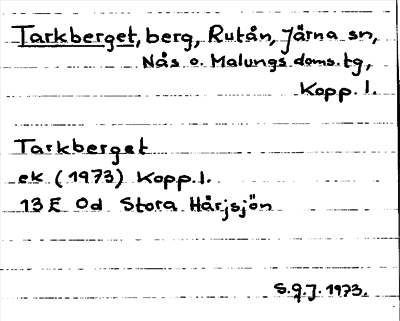 Tarkberget, berg, Rutån, Järna sn,
Nås o. Malungs doms. tg,
Kopp. l.
Tarkberget
ek (1973) Kopp. l.
13 E 0d Stora Hårjsjön
S.G.J. 1973.